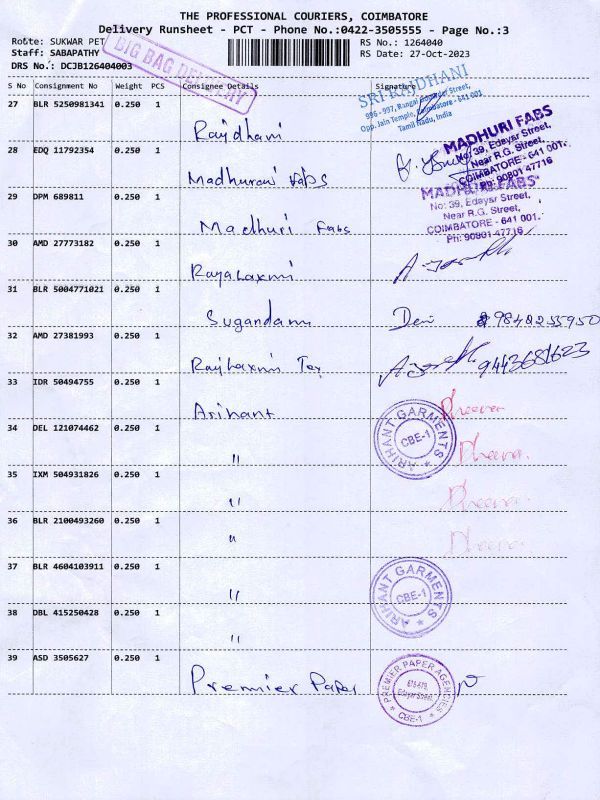 THE PROFESSIONAL COURIERS, COIMBATORE
Delivery Runsheet - PCT - Phone No.:0422-3505555 - Page No.:3
Route: SUKWAR PET
RS No.: 1264040
Staff: SABAPATHY
RS Date: 27-Oct-2023
DRS No.: DCJB126404003
BIG BAG DELIVERY
S No Consignment No Weight PCS Consignee Details Signature
SRI RAJDHANI
Opp. Jain Temple, Coimbatore - 641 001
Tamil Nadu, India
27 BLR 5250981341 0.250 1 Rajdhani
MADHURI FABS
No: 39, Edayar Street,
Near R.G. Street,
COIMBATORE - 641 001.
Ph: 90801 47716
28 EDQ 11792354 0.250 1 Madhurai fabs
MADHURI FABS
No: 39, Edayar Street,
Near R.G. Street,
COIMBATORE - 641 001.
Ph: 90801 47716
29 DPM 689811 0.250 1 Madhuri Fabs
30 AMD 27773182 0.250 1 Rajalaxmi
31 BLR 5004771021 0.250 1 Sugandam Devi
32 AMD 27381993 0.250 1 Rajlaxmi Tex 9443681623
33 IDR 50494755 0.250 1 Arihant Dheena
ARIHANT GARMENTS
CBE-1
34 DEL 121074462 0.250 1 " Dheena.
35 IXM 504931826 0.250 1 " Dheena
36 BLR 2100493260 0.250 1 " Dheena
37 BLR 4604103911 0.250 1 "
ARIHANT GARMENTS
CBE-1
38 DBL 415250428 0.250 1 "
39 ASD 3505627 0.250 1 Premier Paper
PREMIER PAPER AGENCIES
Edayar Street,
CBE-1